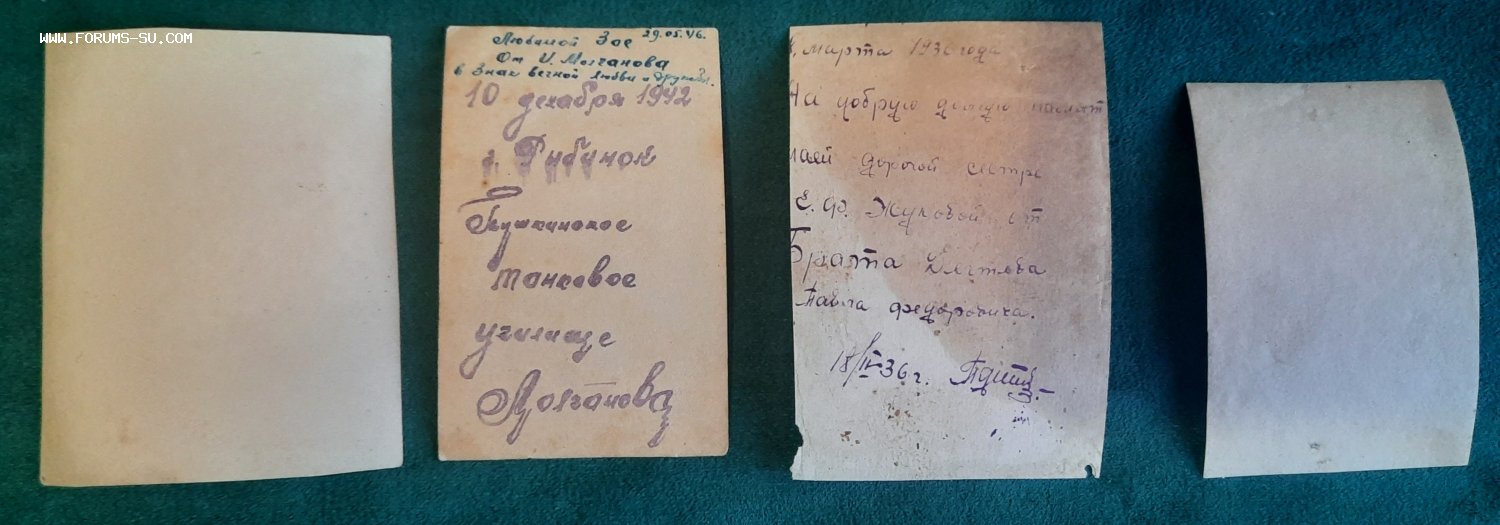 WWW.FORUMS-SU.COM
Любимой Зое 29.05.46.
От И. Молчанова
в знак вечной любви и дружбы.
10 декабря 1942
г. Рыбинск
Пушкинское
танковое
училище
Молчанова
марта 1936 года
На добрую долгую
маей дорогой сестре
Е. Ф. Жуковой от
Брата
Павла Федоровича.
18/IV-36 г.